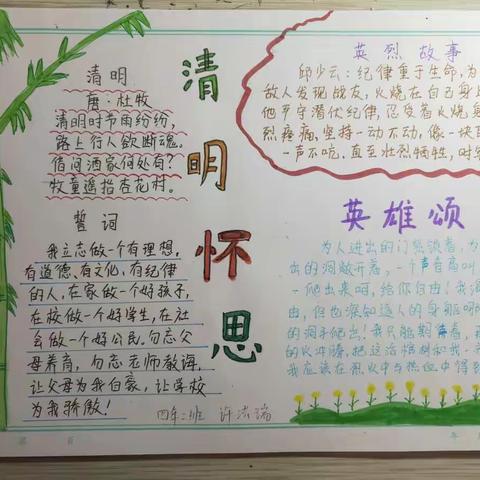 清明
唐·杜牧
清明时节雨纷纷，
路上行人欲断魂。
借问酒家何处有？
牧童遥指杏花村。
誓词
我立志做一个有理想，
有道德、有文化、有纪律
的人，在家做一个好孩子，
在校做一个好学生，在社
会做一个好公民，勿忘父
母养育，勿忘老师教诲，
让父母为我自豪，让学校
为我骄傲！
清明怀思
四年二班
英烈故事
邱少云：纪律重于生命，为
敌人发现战友，火烧在自己身
他严守潜伏纪律，忍受着火烧
烈疼痛，坚持一动不动，像一块
一声不吭，直至壮烈牺牲，时
英雄颂
为人进出的门紧锁着，为
出的洞敞开着，一个声音高叫
—爬出来呵，给你自由！我
由，但也深知道人的身躯
的洞子爬出！我只能期待着，
的火冲腾，把这活棺材和我一
我应该在烈火中与热血中得到
页
年